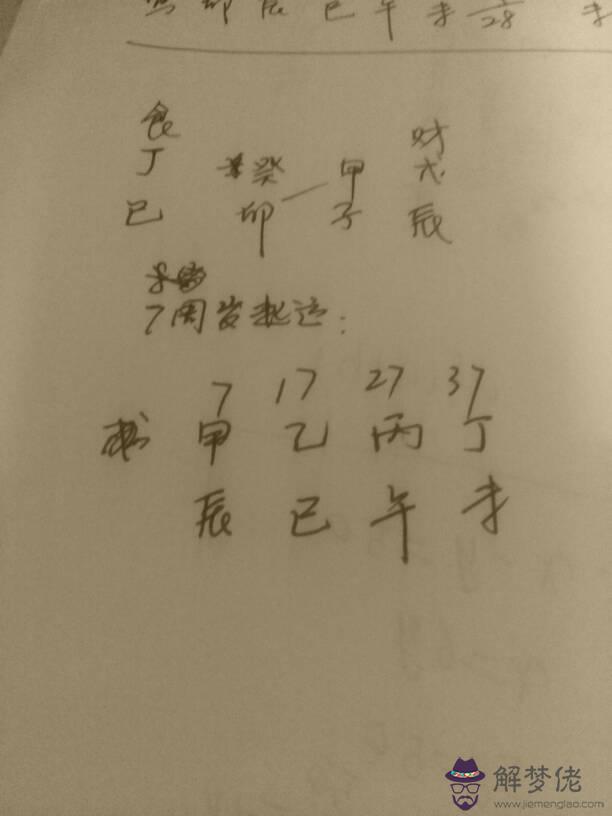 卯 辰 巳 午 未 28 未
食 财
丁 癸 甲 戊
巳 卯 子 辰
7周岁起运:
7 17 27 37
甲 乙 丙 丁
辰 巳 午 未
解梦佬
www.jiemenglao.com